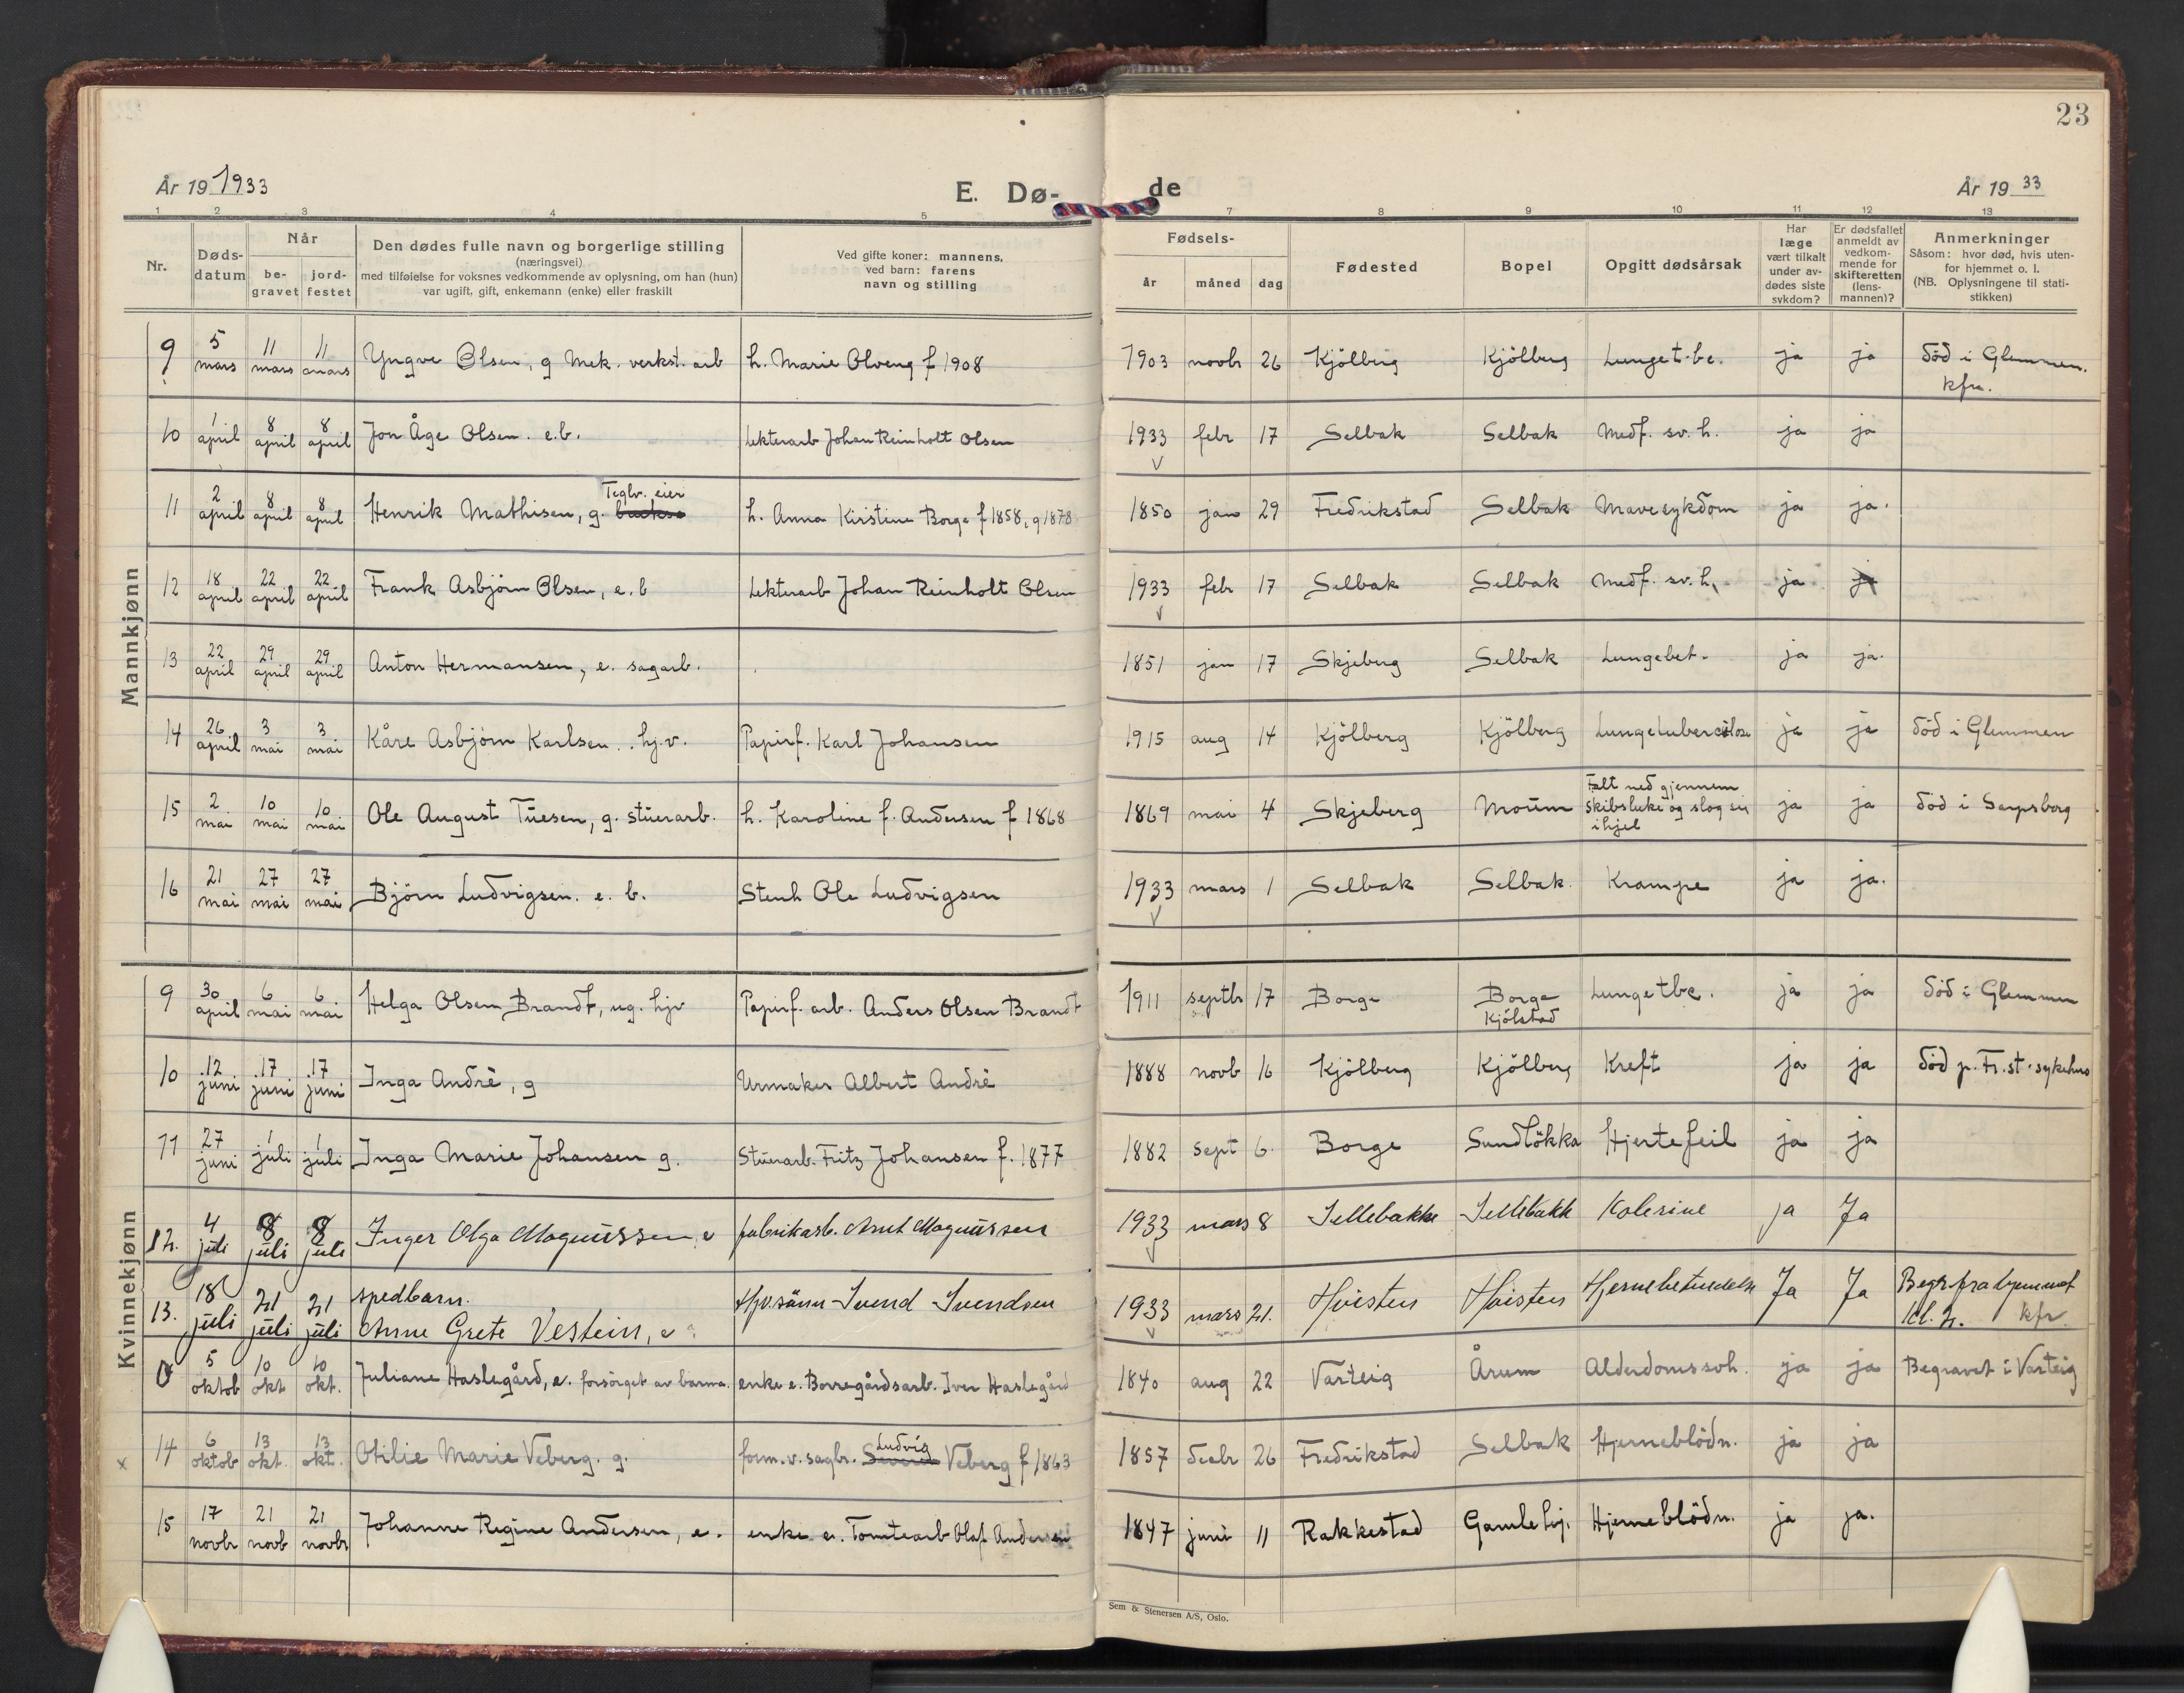 23
År 19 1933
E. Dø-
de
År 19 33
1 2 3 4 5 7 8 9 10 11 12 13
Nr.
Døds-
datum
Når
be-
gravet
jord-
festet
Den dødes fulle navn og borgerlige stilling
(næringsvei)
med tilføielse for voksnes vedkommende av oplysning, om han (hun)
var ugift, gift, enkemann (enke) eller fraskilt
Ved gifte koner: mannens,
ved barn: farens
navn og stilling
Fødsels-
år måned dag
Fødested
Bopel
Opgitt dødsårsak
Har
læge
vært tilkalt
under av-
dødes siste
sykdom?
Er dødsfallet
anmeldt av
vedkom-
mende for
skifteretten
(lens-
mannen)?
Anmerkninger
Såsom: hvor død, hvis uten-
for hjemmet o. l.
(NB. Oplysningene til stati-
stikken)
Mannkjønn
9 5 mars 11 mars 11 mars Yngve Olsen, g Mek. verkst. arb h. Marie Olveng f 1908 1903 novbr 26 Kjölberg Kjölberg Lunget.be. ja ja död i Glemmen.
kfr.
10 1 april 8 april 8 april Jon Åge Olsen. e.b. Lekterarb Johan Reinholt Olsen 1933 febr 17 Selbak Selbak Medf. sv. h. ja ja
Teglv. eier
11 2 april 8 april 8 april Henrik Mathisen, g. h. Anna Kristine Borge f 1858, g 1878 1850 jan 29 Fredrikstad Selbak Mavesykdom ja ja.
12 18 april 22 april 22 april Frank Asbjörn Olsen, e. b Lekterarb Johan Reinholt Olsen 1933 febr 17 Selbak Selbak Medf. sv. h. ja ja
13 22 april 29 april 29 april Anton Hermansen, e. sagarb. 1851 jan 17 Skjeberg Selbak Lungebet. ja ja.
14 26 april 3 mai 3 mai Kåre Asbjörn Karlsen. hj.v. Papirf. Karl Johansen 1915 aug 14 Kjölberg Kjölberg Lungetuberculose ja ja död i Glemmen
15 2 mai 10 mai 10 mai Ole August Tuesen, g. stuerarb. h. Karoline f. Andersen f 1868 1869 mai 4 Skjeberg Moum Falt ned gjennem
skibsluke og slog sig
ihjel ja ja död i Sarpsborg
16 21 mai 27 mai 27 mai Björn Ludvigsen. e. b. Stenh Ole Ludvigsen 1933 mars 1 Selbak Selbak. Krampe ja ja.
Kvinnekjønn
9 30 april 6 mai 6 mai Helga Olsen Brandt, ug. hjv Papirf. arb. Anders Olsen Brandt 1911 septbr 17 Borge Borge
Kjölstad Lungetbc. ja ja död i Glemmen
10 12 juni 17 juni 17 juni Inga Andrè, g Urmaker Albert Andrè 1888 novb 16 Kjölberg Kjölberg Kreft ja ja död p. Fr.st. sykehus
11 27 juni 1 juli 1 juli Inga Marie Johansen g. Stuerarb. Fritz Johansen f. 1877 1882 sept 6. Borge Sundlökka Hjertefeil ja ja
12. 4 juli 8 juli 8 juli Inger Olga Magnussen, e fabrikarb. Arnt Magnussen 1933 mars 8 Sellebakke Sellebakk Kolerine ja Ja
13. 18 juli 21 juli 21 juli spedbarn.
Anne Grete Vestein, e Hjv.sönn Svend Svendsen 1933 mars 21. Hvisten Hvisten Hjernebetendelse Ja Ja Begr. fra hjemmet
kl. 2. kfr.
0 5 oktob 10 okt 10 okt. Juliane Haslegård, e. forsörget av barna. enke e. Borregårdsarb. Iver Haslegård 1840 aug 22 Varteig Årum Alderdomssvh. ja ja Begravet i Varteig
x 14 6 oktob 13 okt. 13 okt. Otilie Marie Veberg. g. form. v. sagbr. Ludvig Veberg f 1863 1857 decbr 26 Fredrikstad Selbak Hjerneblödn. ja ja
15 17 novbr 21 novb 21 novbr Johanne Regine Andersen, e. enke e. Tomtearb Olaf Andersen 1847 juni 11 Rakkestad Gamlehj. Hjerneblödn. ja ja.
Sem & Stenersen A/S, Oslo.